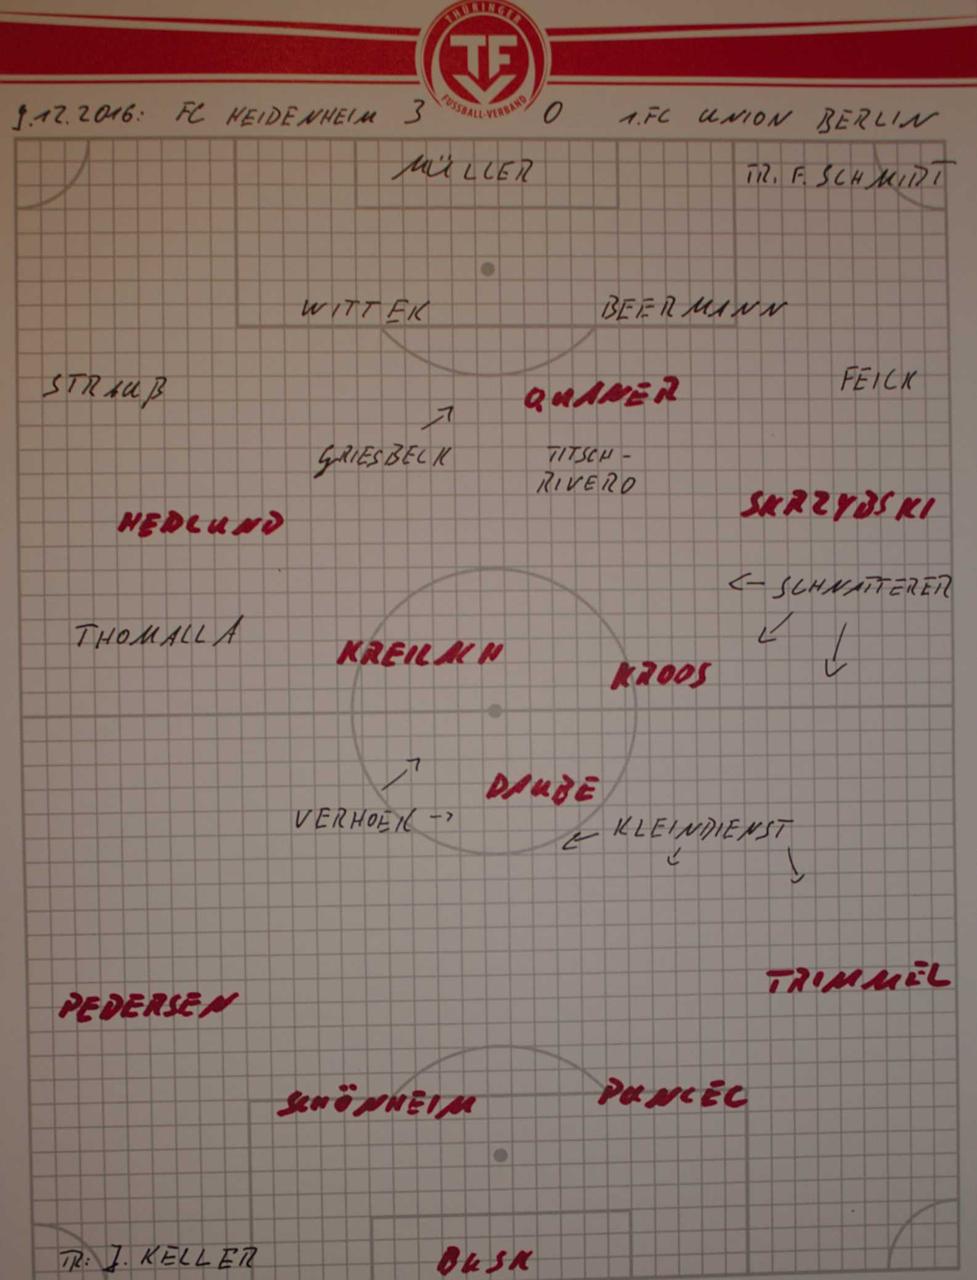 THÜRINGER
TF
FUSSBALL-VERBAND
9.12.2016: FC HEIDENHEIM 3 0 1.FC UNION BERLIN
MÜLLER
TR. F. SCHMIDT
WITTEK BEERMANN
STRAUß FEICK
QUANER
GRIESBECK TITSCH-
RIVERO
HEDLUND SKRZYBSKI
SCHNATTERER
THOMALLA
KREILACH KROOS
DAUBE
VERHOEK KLEINDIENST
PEDERSEN TRIMMEL
SCHÖNHEIM PUNCEC
TR: J. KELLER BUSK